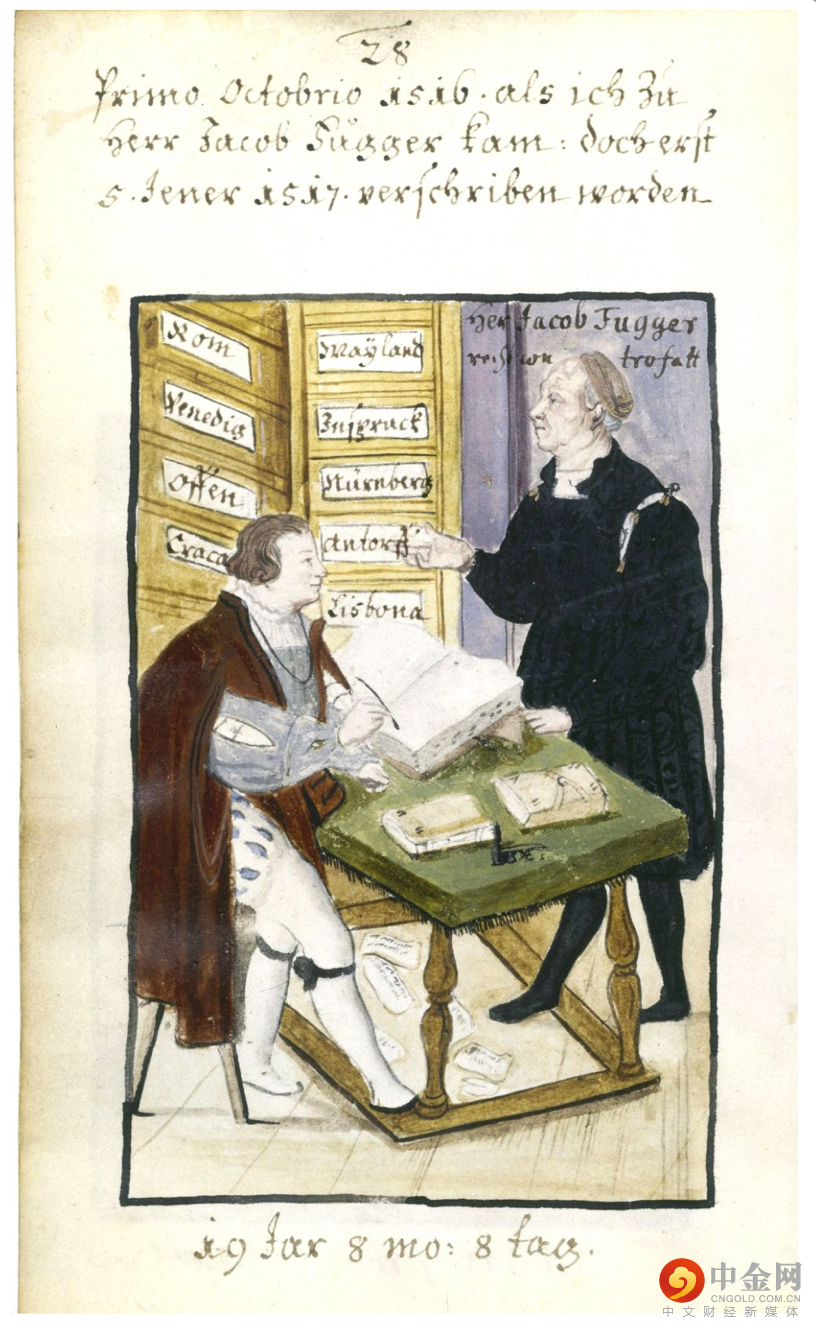 28
Primo Octobrio 1516. als ich zu
Herr Jacob Fugger kam: doch erst
5. Jener 1517. verschriben worden
Her Jacob Fugger
Rom
Mayland
Venedig
Inspruck
Offen
Nürnberg
Craca
Antorff
Lisbona
19 Jar 8 mo: 8 tag.
中金网
CNGOLD.COM.CN
中文财经新媒体